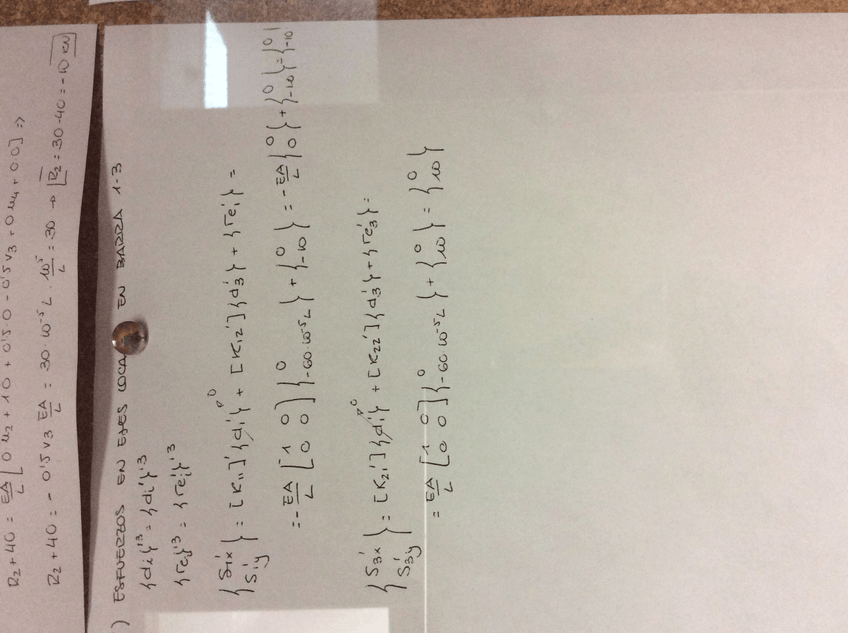 R2+40 = EA/L [0 u2 + 10 + 0'5·0 - 0'5 v3 + 0 u4 + 0·0] =>
R2+40 = - 0'5 v3 EA/L = 30·10^-5 L · 10^5/L = 30 → R2 = 30-40 = -10 KN
) ESFUERZOS EN EJES LOCA EN BARRA 1-3
{di}'3 = {di'}'3
{rei}'3 = {rei'}'3
{S1x' S1y'} = [K11]'{d1'} 0 + [K12']{d3'} + {re1'} =
= - EA/L [1 0 0 0] {0 -60·10^-5 L} + {0 -10} = - EA/L {0 0} + {0 -10} = {0 -10}
{S3x' S3y'} = [K21']{d1'} 0 + [K22']{d3'} + {re3'} =
= EA/L [1 0 0 0] {0 -60·10^-5 L} + {0 10} = {0 10}